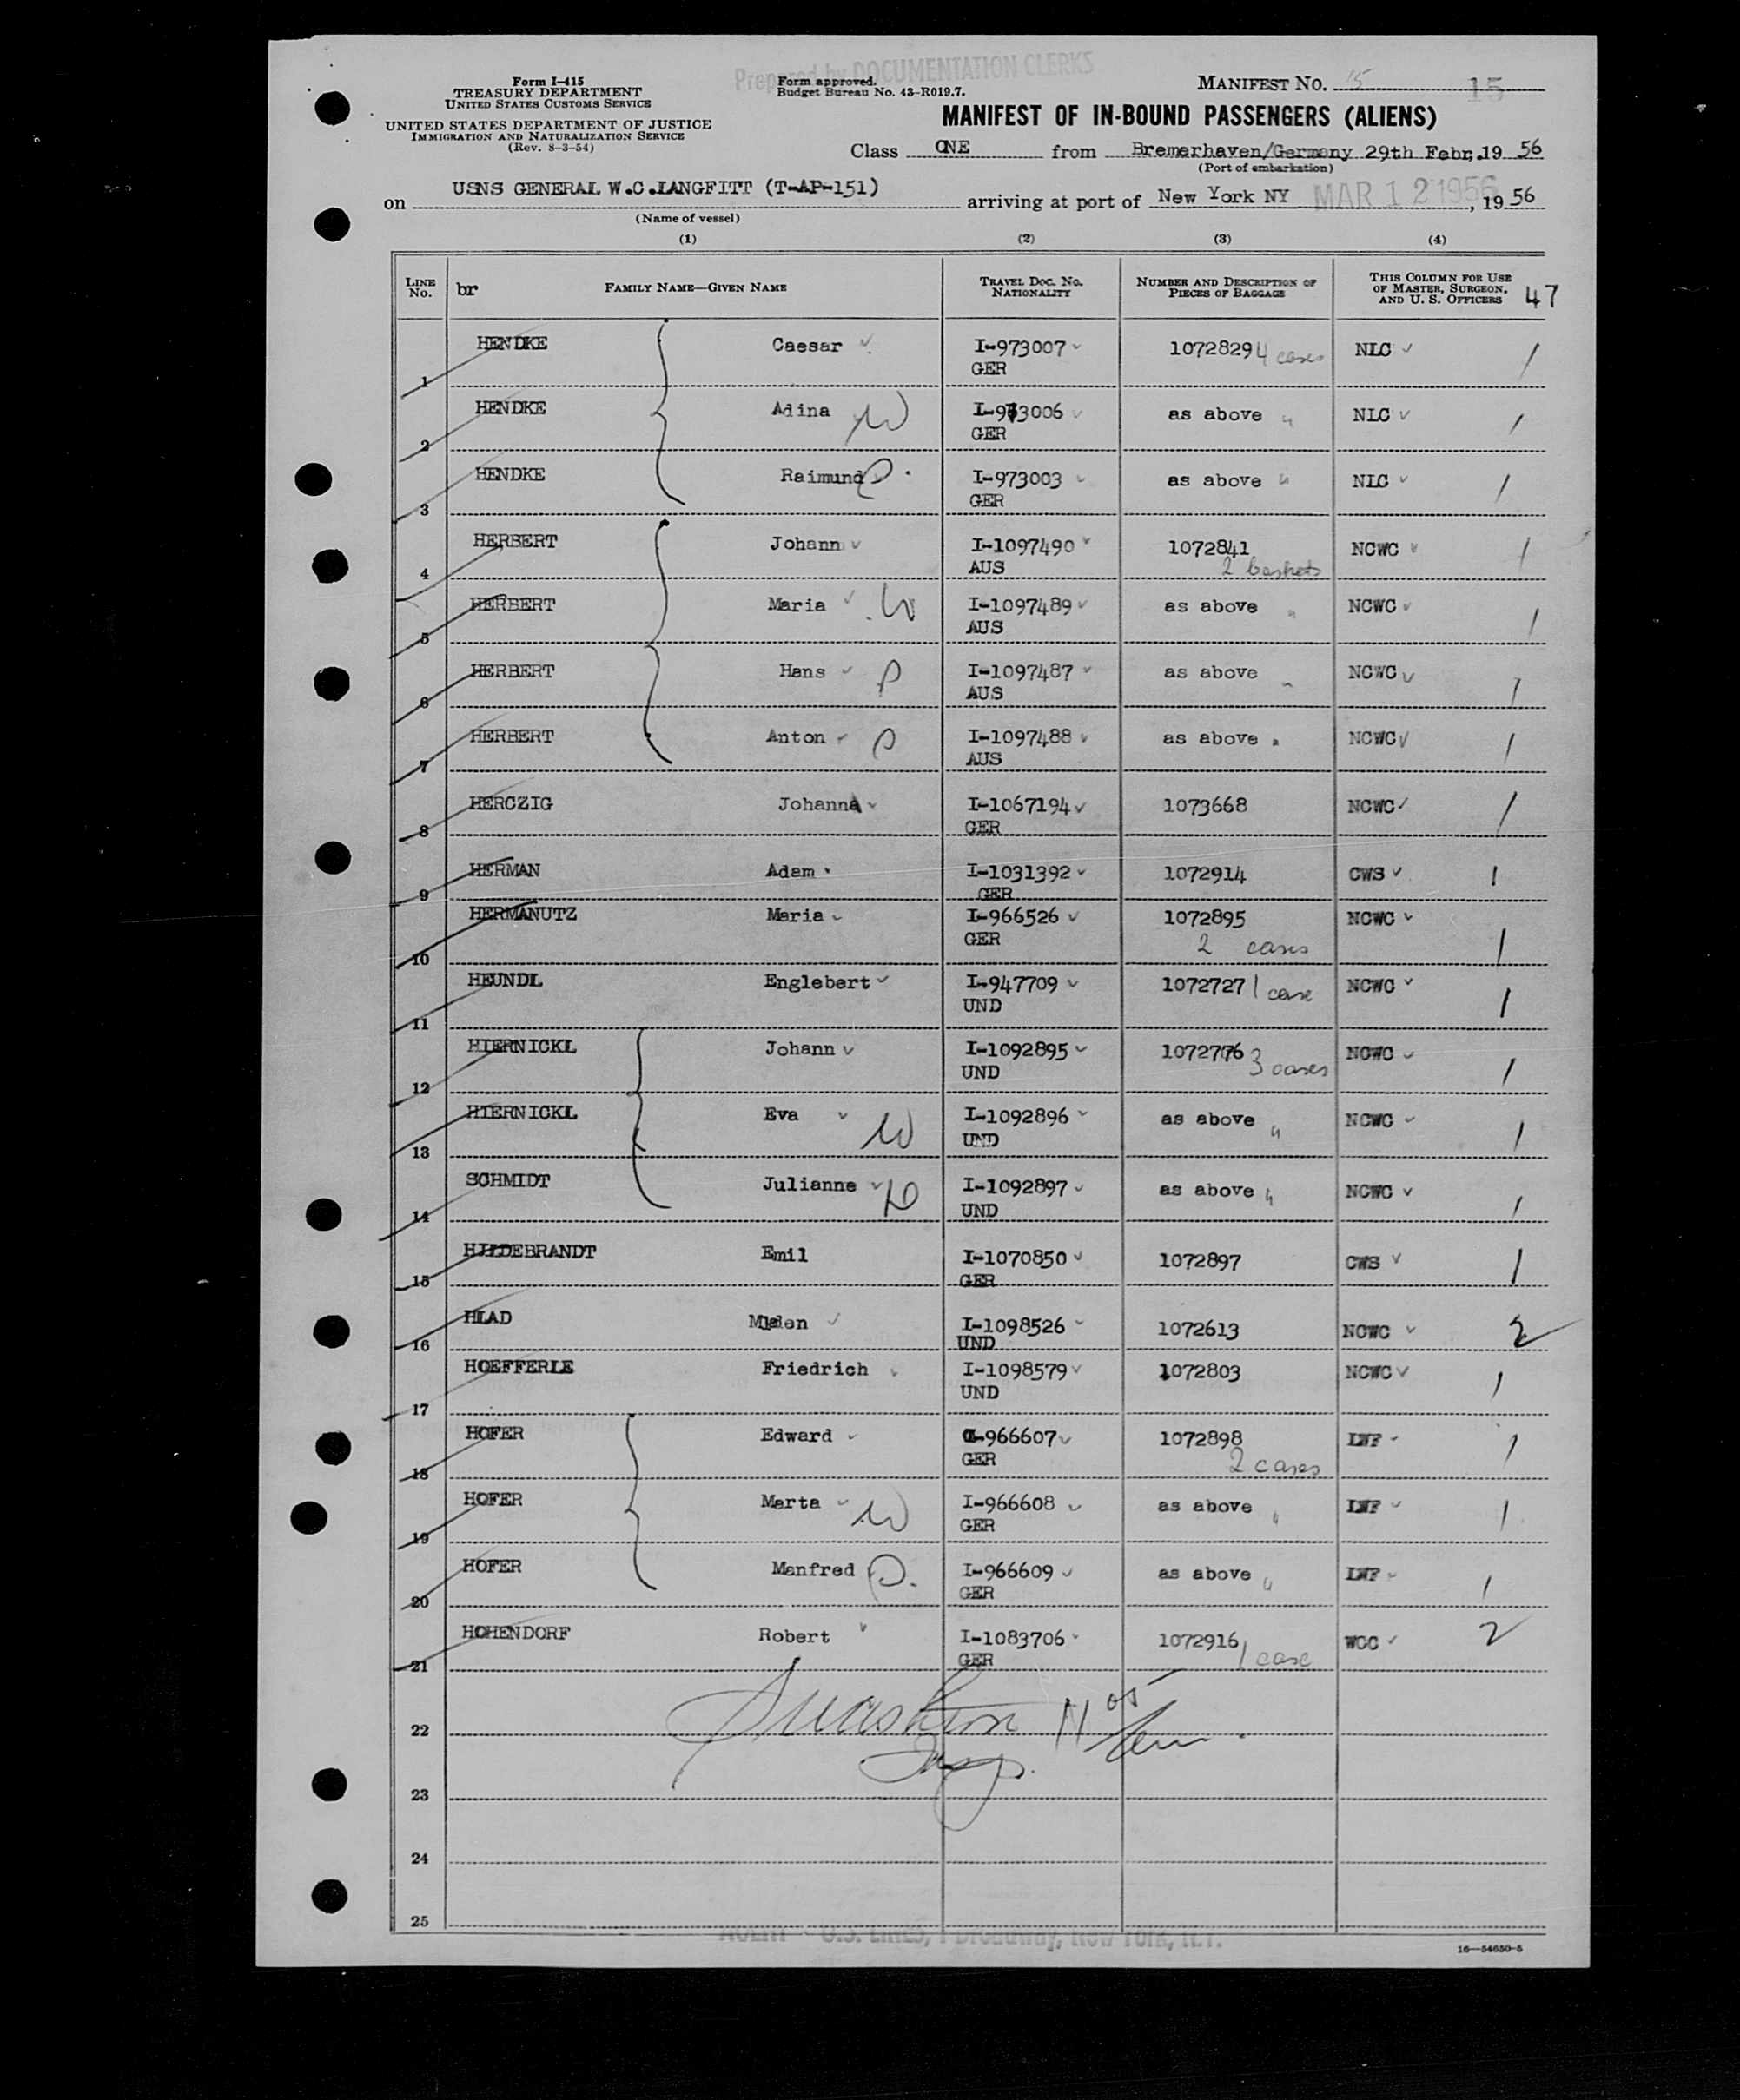 Prepared by DOCUMENTATION CLERKS
Form I-415
TREASURY DEPARTMENT
UNITED STATES CUSTOMS SERVICE
UNITED STATES DEPARTMENT OF JUSTICE
IMMIGRATION AND NATURALIZATION SERVICE
(Rev. 8-3-54)
Form approved.
Budget Bureau No. 43-R019.7.
MANIFEST NO. 15 15
MANIFEST OF IN-BOUND PASSENGERS (ALIENS)
Class ONE from Bremerhaven/Germany 29th Febr. 19 56
(Port of embarkation)
on USNS GENERAL W.C.LANGFITT (T-AP-151) arriving at port of New York NY MAR 12 1956, 19 56
(Name of vessel)
(1) (2) (3) (4)
LINE NO. br FAMILY NAME—GIVEN NAME TRAVEL DOC. NO. NATIONALITY NUMBER AND DESCRIPTION OF PIECES OF BAGGAGE THIS COLUMN FOR USE OF MASTER, SURGEON, AND U. S. OFFICERS 47
1 HENDKE Caesar I-973007 GER 1072829 4 cases NLC 1
2 HENDKE Adina W I-973006 GER as above " NLC 1
3 HENDKE Raimund I-973003 GER as above " NLC 1
4 HERBERT Johann I-1097490 AUS 1072841 2 baskets NCWC 1
5 HERBERT Maria W I-1097489 AUS as above " NCWC 1
6 HERBERT Hans I-1097487 AUS as above " NCWC 1
7 HERBERT Anton I-1097488 AUS as above " NCWC 1
8 HERCZIG Johanna I-1067194 GER 1073668 NCWC 1
9 HERMAN Adam I-1031392 GER 1072914 CWS 1
10 HERMANUTZ Maria I-966526 GER 1072895 2 cases NCWC 1
11 HEUNDL Englebert I-947709 UND 1072727 1 case NCWC 1
12 HIERNICKL Johann I-1092895 UND 1072776 3 cases NCWC 1
13 HIERNICKL Eva W I-1092896 UND as above " NCWC 1
14 SCHMIDT Julianne I-1092897 UND as above " NCWC 1
15 HILDEBRANDT Emil I-1070850 GER 1072897 CWS 1
16 HLAD I-1098526 UND 1072613 NCWC 2
17 HOEFFERLE Friedrich I-1098579 UND 1072803 NCWC 1
18 HOFER Edward I-966607 GER 1072898 2 cases LWF 1
19 HOFER Marta W I-966608 GER as above " LWF 1
20 HOFER Manfred I-966609 GER as above " LWF 1
21 HOHENDORF Robert I-1083706 GER 1072916 1 case WCC 2
22
23
24
25
AGENT - U.S. LINES, 1 Broadway, New York, N.Y.
16—54650-5